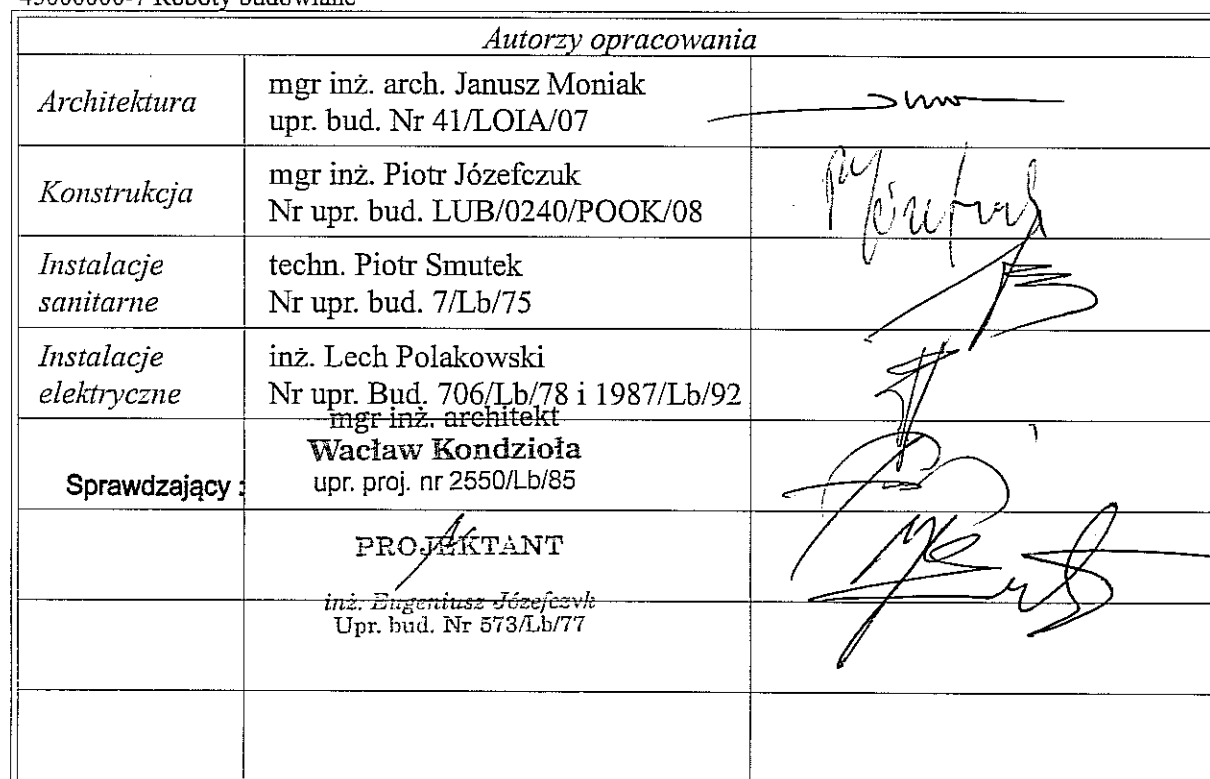 45000000-7 Roboty budowlane
Autorzy opracowania
Architektura
mgr inż. arch. Janusz Moniak
upr. bud. Nr 41/LOIA/07
Konstrukcja
mgr inż. Piotr Józefczuk
Nr upr. bud. LUB/0240/POOK/08
Instalacje
sanitarne
techn. Piotr Smutek
Nr upr. bud. 7/Lb/75
Instalacje
elektryczne
inż. Lech Polakowski
Nr upr. Bud. 706/Lb/78 i 1987/Lb/92
Sprawdzający :
mgr inż. architekt
Wacław Kondzioła
upr. proj. nr 2550/Lb/85
PROJEKTANT
inż. Eugeniusz Józefczyk
Upr. bud. Nr 573/Lb/77